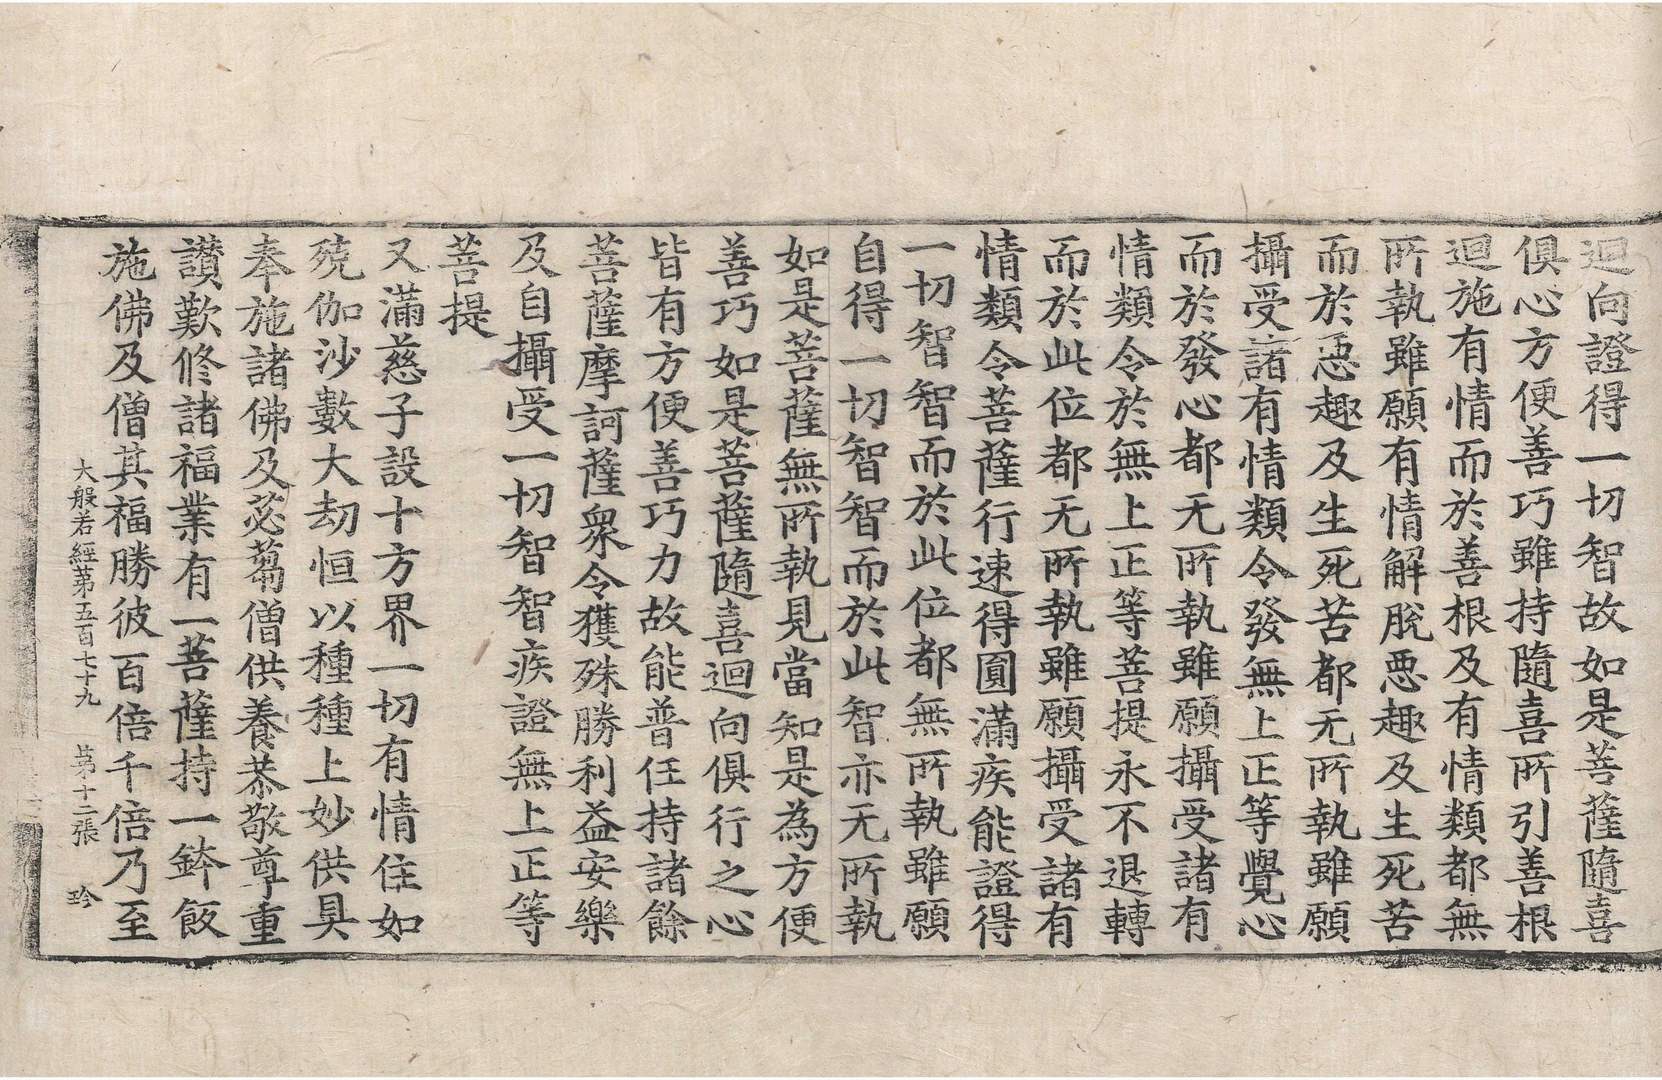 迴向證得一切智故如是菩薩隨喜
俱心方便善巧雖持隨喜所引善根
迴施有情而於善根及有情類都無
所執雖願有情解脫惡趣及生死苦
而於惡趣及生死苦都无所執雖願
攝受諸有情類令發無上正等覺心
而於發心都无所執雖願攝受諸有
情類令於無上正等菩提永不退轉
而於此位都无所執雖願攝受諸有
情類令菩薩行速得圓滿疾能證得
一切智智而於此位都無所執雖願
自得一切智智而於此智亦无所執
如是菩薩無所執見當知是為方便
善巧如是菩薩隨喜迴向俱行之心
皆有方便善巧力故能普任持諸餘
菩薩摩訶薩眾令獲殊勝利益安樂
及自攝受一切智智疾證無上正等
菩提
又滿慈子設十方界一切有情住如
殑伽沙數大劫恒以種種上妙供具
奉施諸佛及苾蒭僧供養恭敬尊重
讚歎修諸福業有一菩薩持一鉢飯
施佛及僧其福勝彼百倍千倍乃至
大般若經苐五百七十九 苐十二張 珎